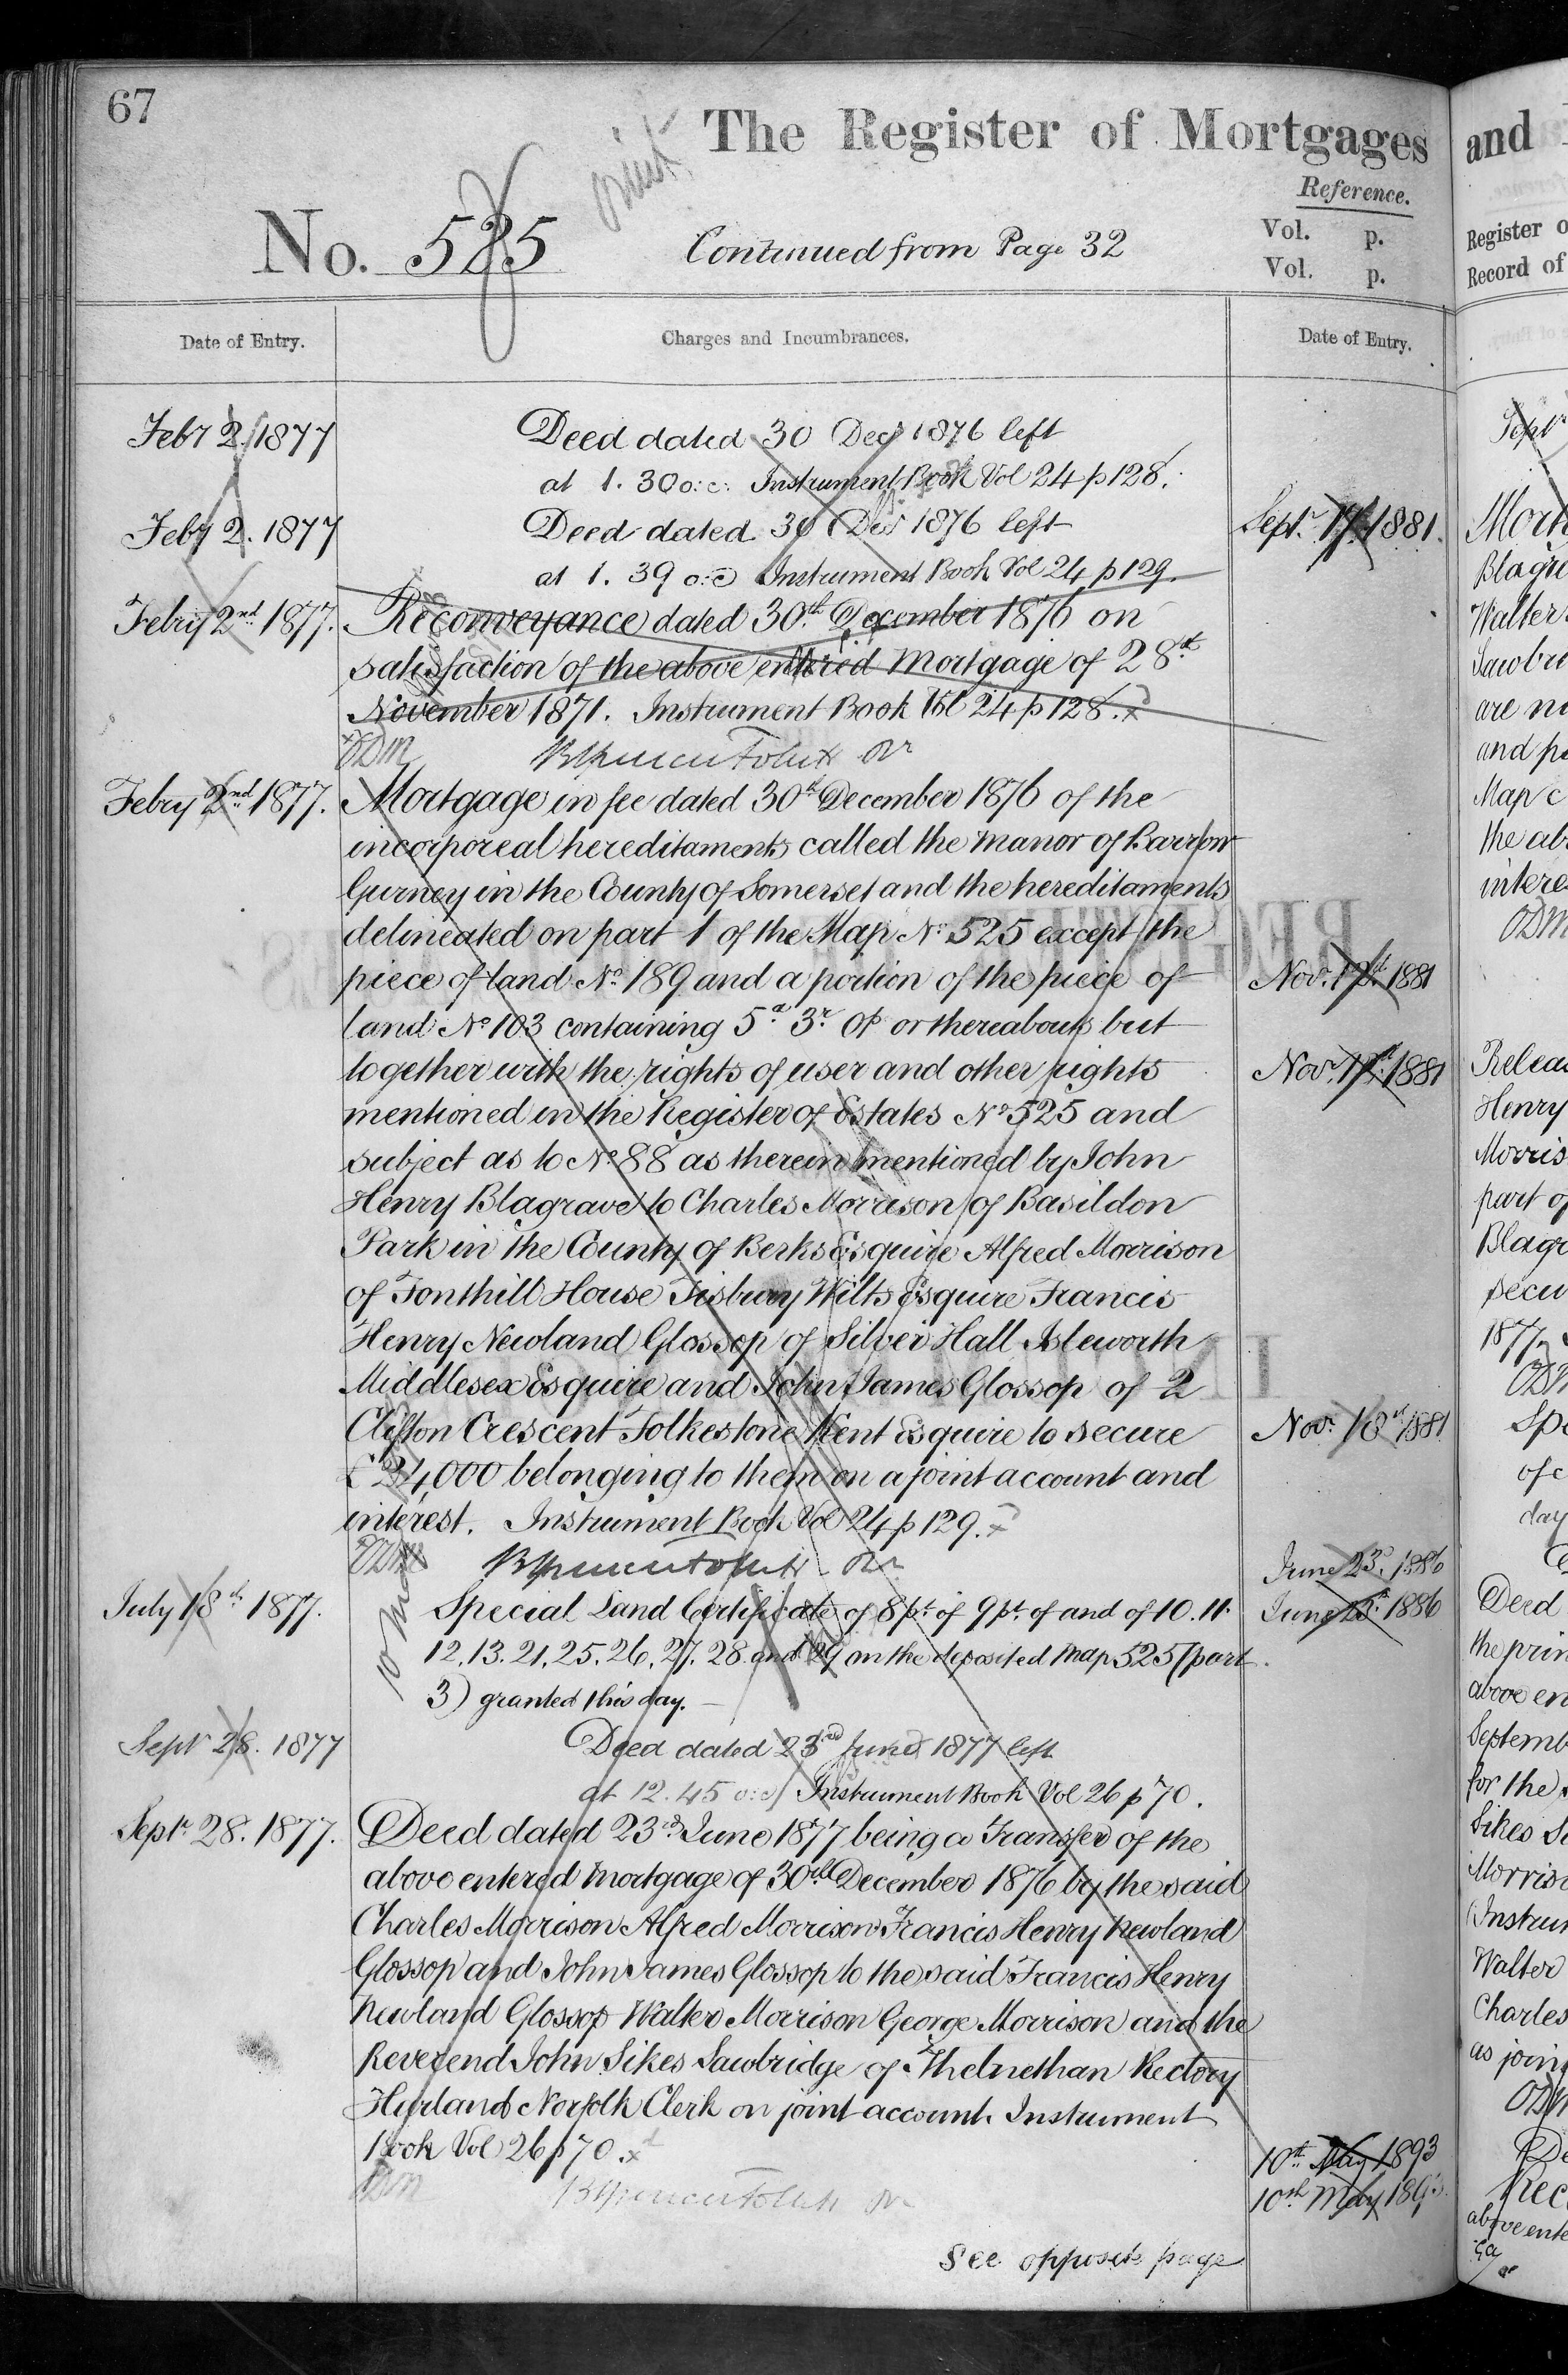 67
The Register of Mortgages
Reference.
No. 525
Continued from Page 32
Vol. p.
Vol. p.
Date of Entry.
Charges and Incumbrances.
Date of Entry.
Feby 2. 1877
Deed dated 30 Decr 1876 left
at 1. 30 o:c: Instrument Book Vol 24 p 128.
Feby 2. 1877
Deed dated 30 Decr 1876 left
at 1. 39 o:c Instrument Book Vol 24 p 129.
Febry 2nd 1877.
Reconveyance dated 30th December 1876 on
satisfaction of the above entered Mortgage of 28th
November 1871. Instrument Book Vol 24 p 128.
ODM
Febry 2nd 1877.
Mortgage in fee dated 30th December 1876 of the
incorporeal hereditaments called the Manor of Barrow
Gurney in the County of Somerset and the hereditaments
delineated on part 1 of the Map No. 525 except the
piece of land No. 189 and a portion of the piece of
land No. 103 containing 5a 3r 0p or thereabouts but
together with the rights of user and other rights
mentioned in the Register of Estates No. 525 and
subject as to No. 88 as therein mentioned by John
Henry Blagrave to Charles Morrison of Basildon
Park in the County of Berks Esquire Alfred Morrison
of Fonthill House Tisbury Wilts Esquire Francis
Henry Newland Glossop of Silver Hall Isleworth
Middlesex Esquire and John James Glossop of 2
Clifton Crescent Folkestone Kent Esquire to secure
£24,000 belonging to them on a joint account and
interest. Instrument Book Vol 24 p 129.
ODM
July 18th 1877.
Special Land Certificate of 8 pt. of 9 pt. of and of 10. 11.
12. 13. 21. 25. 26. 27. 28. and 29 on the deposited map 525 (part
3) granted this day.
Sept 28. 1877
Deed dated 23rd June 1877 left
at 12. 45 o:c Instrument Book Vol 26 p 70.
Septr 28. 1877.
Deed dated 23rd June 1877 being a Transfer of the
above entered Mortgage of 30th December 1876 by the said
Charles Morrison Alfred Morrison Francis Henry Newland
Glossop and John James Glossop to the said Francis Henry
Newland Glossop Walter Morrison George Morrison and the
Reverend John Sikes Sawbridge of Thelnethan Rectory
Harland Norfolk Clerk on joint account. Instrument
Book Vol 26 p 70.
ODM
See opposite page
Septr. 17. 1881.
Nov. 1881
Nov. 1881
Novr. 18th 1881
June 23rd. 1886
June 1886
10th May 1893
10th May 1893
and
Register o
Record of
Septr
Mort
Blagr
Walter
Sawbri
are no
and pa
Map c
the ab
intere
ODM
Releas
Henry
Morris
part of
Blagr
secu
1877.
ODM
Spe
of c
day
Deed
the prin
above en
Septemb
for the
Sikes Sa
Morriso
(Instrum
Walter
Charles
as join
ODM
De
Rec
above ente